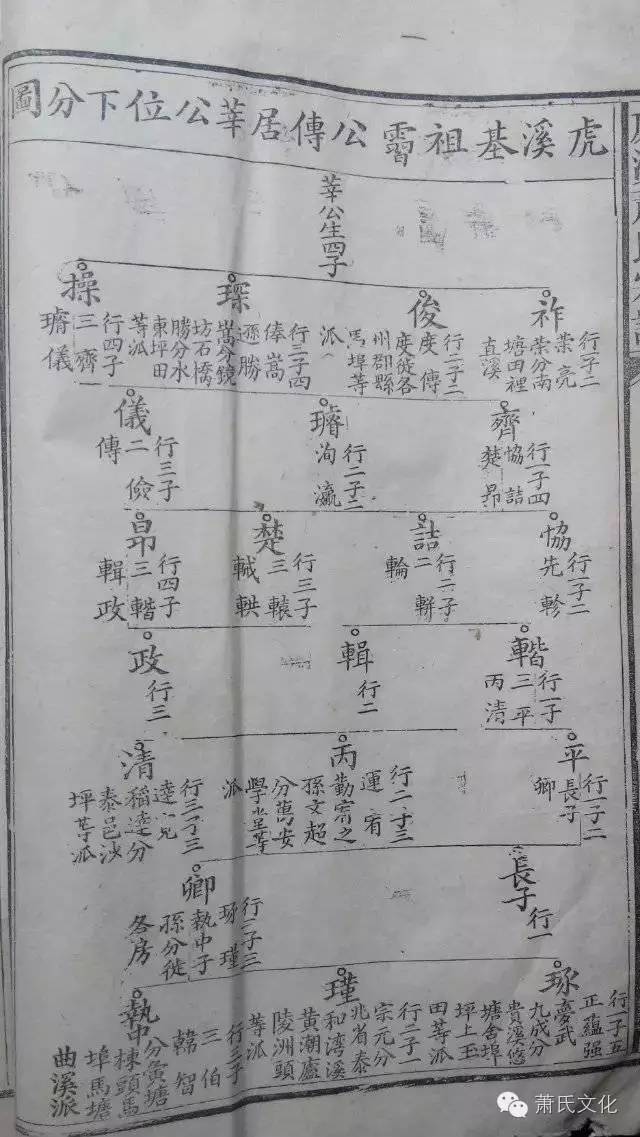 虎溪基祖霫公傳居莘公位下分圖
莘公生四子
祚
行一子二
榮亮
榮分南
塘田裡
直溪
俊
行二子二
度傳
度徙各
州郡縣
馬埠等
派
琛
行三子四
俸嵩
遜勝
嵩分鏡
坊石橋
勝分水
東坪田
等派
操
行四子
三齊
璿儀
齊
行一子四
恊詰
楚昴
璿
行二子二
洵瀛
儀
行三子
二儉
傳
恊
行一子二
先軫
詰
行二子
二軿
輪
楚
行三子
三轅
軾軼
昴
行四子
三輶
輯政
行一子
三平
丙清
輯
行二
政
行三
平
行一子二
長子
卿
丙
行二子三
運宥
勤宥之
孫文超
分萬安
學堂等
派
清
行三子三
達兒
稲達分
泰邑沙
坪等派
長子
行一
卿
行二子三
琢瑾
執中子
孫分徙
各房
琢
行一子五
正蘊强
夔武
九成分
貴溪悠
塘舍埠
坪上玉
田等派
瑾
行二子一
宗元分
北省泰
和湾溪
黄潮廬
陵洲頭
等派
執中
行三子
三伯
韓智
分賣塘
棟頭馬
埠馬塘
曲溪派
萧氏文化